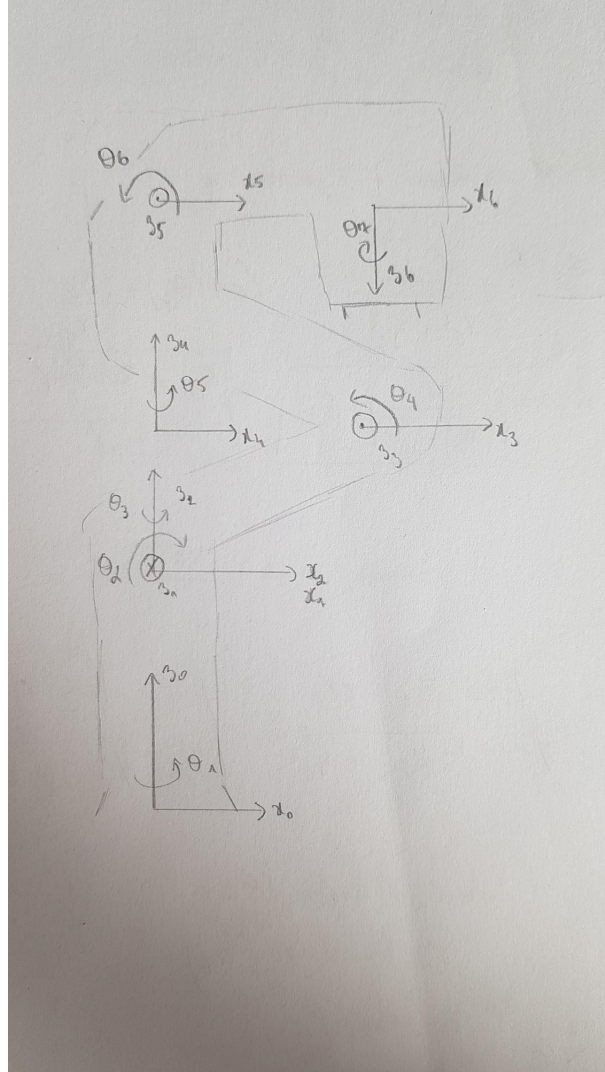 θ6
x5
z5
x6
θ7
z6
z4
θ5
x4
θ4
z3
x3
θ3
z2
θ2
z1
x2
x1
z0
θ1
x0